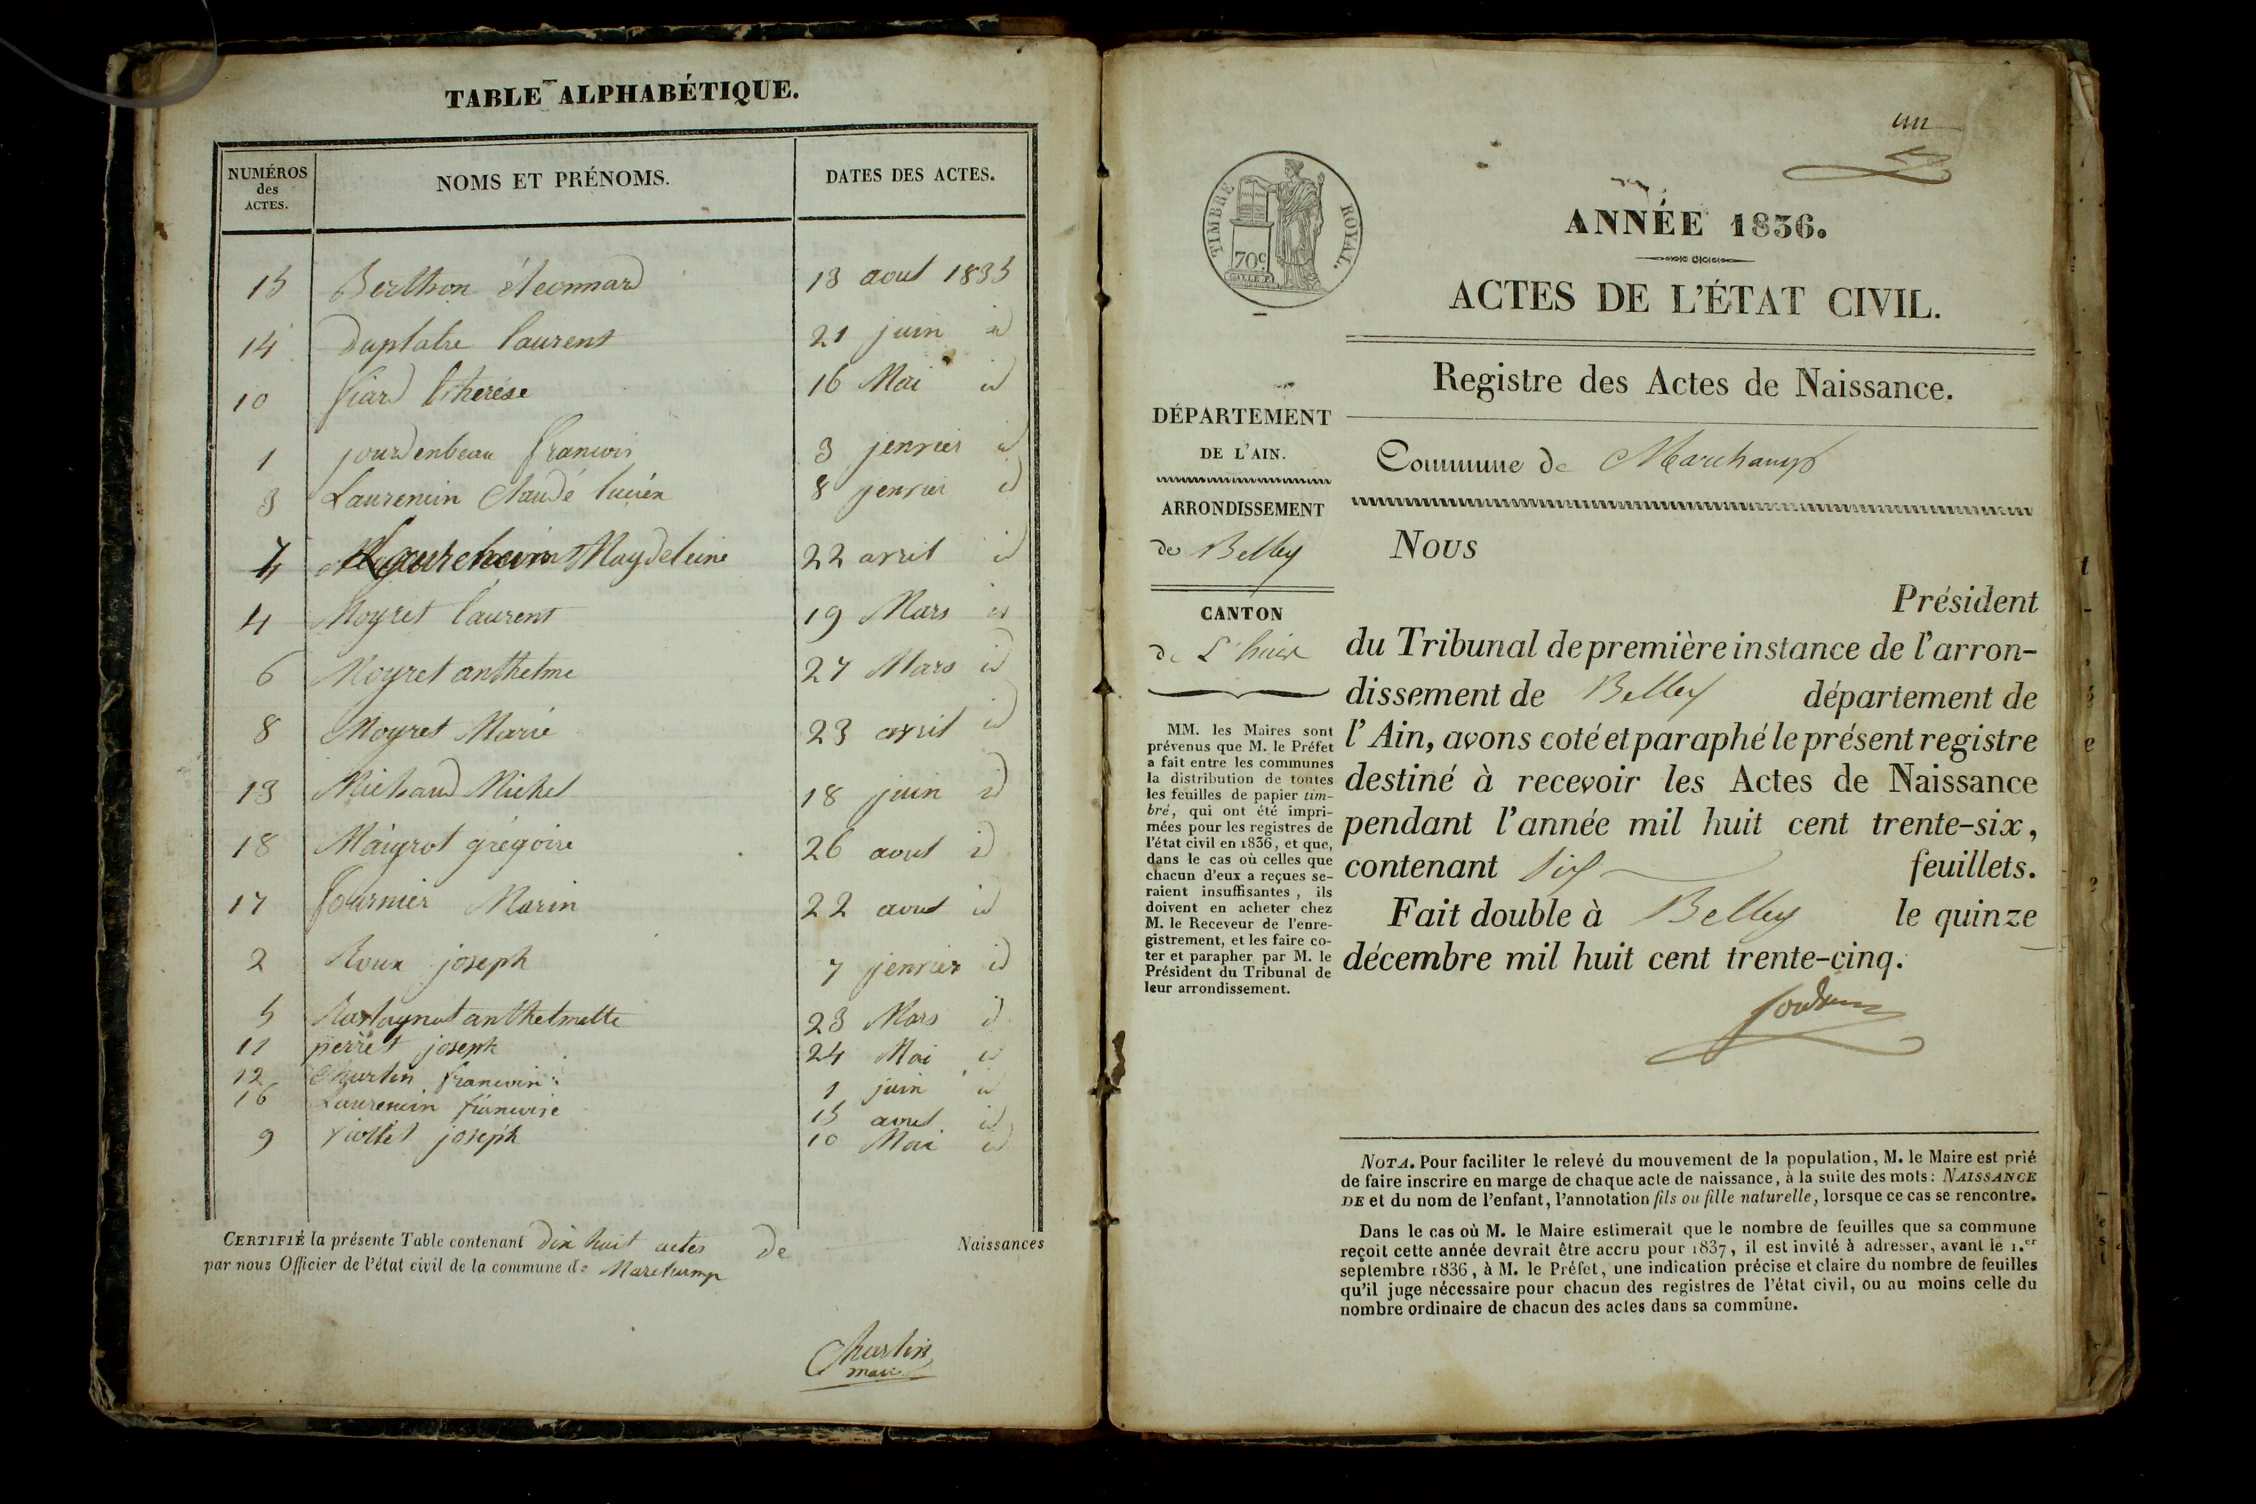 TABLE ALPHABÉTIQUE.
NUMÉROS des ACTES. NOMS ET PRÉNOMS. DATES DES ACTES.
15 Berthon éléonnard 13 aout 1835
14 Duplatre laurent 21 juin id
10 fiard therése 16 Mai id
1 jourdenbeau francois 3 jenvier id
3 Laurencin Claude lucién 8 jenvier id
7 Magdeleine 22 avril id
4 Moyret laurent 19 Mars id
6 Moyret anthelme 27 Mars id
8 Moyret Marie 23 avril id
13 Michaud Michel 18 juin id
18 Maigrot grégoire 26 aout id
17 fournier Marin 22 aout id
2 Roux joseph 7 jenvier id
5 anthelmette 23 Mars id
11 perret joseph 24 Mai id
12 Charlin francois 1 juin id
16 Laurencin francoise 15 aout id
9 viollet joseph 10 Mai id
CERTIFIÉ la présente Table contenant dix huit actes de Naissances
par nous Officier de l'état civil de la commune de Marchamp
Charlin
maire
un
TIMBRE ROYAL.
70c
ANNÉE 1836.
ACTES DE L'ÉTAT CIVIL.
Registre des Actes de Naissance.
DÉPARTEMENT
DE L'AIN.
ARRONDISSEMENT
de Belley
CANTON
de L'huis
MM. les Maires sont
prévenus que M. le Préfet
a fait entre les communes
la distribution de toutes
les feuilles de papier tim-
bré, qui ont été impri-
mées pour les registres de
l'état civil en 1836, et que,
dans le cas où celles que
chacun d'eux a reçues se-
raient insuffisantes, ils
doivent en acheter chez
M. le Receveur de l'enre-
gistrement, et les faire co-
ter et parapher par M. le
Président du Tribunal de
leur arrondissement.
Commune de Marchamp
Nous
Président
du Tribunal de première instance de l'arron-
dissement de Belley département de
l'Ain, avons coté et paraphé le présent registre
destiné à recevoir les Actes de Naissance
pendant l'année mil huit cent trente-six,
contenant six feuillets.
Fait double à Belley le quinze
décembre mil huit cent trente-cinq.
NOTA. Pour faciliter le relevé du mouvement de la population, M. le Maire est prié
de faire inscrire en marge de chaque acte de naissance, à la suite des mots: NAISSANCE
DE et du nom de l'enfant, l'annotation fils ou fille naturelle, lorsque ce cas se rencontre.
Dans le cas où M. le Maire estimerait que le nombre de feuilles que sa commune
reçoit cette année devrait être accru pour 1837, il est invité à adresser, avant le 1.er
septembre 1836, à M. le Préfet, une indication précise et claire du nombre de feuilles
qu'il juge nécessaire pour chacun des registres de l'état civil, ou au moins celle du
nombre ordinaire de chacun des actes dans sa commune.